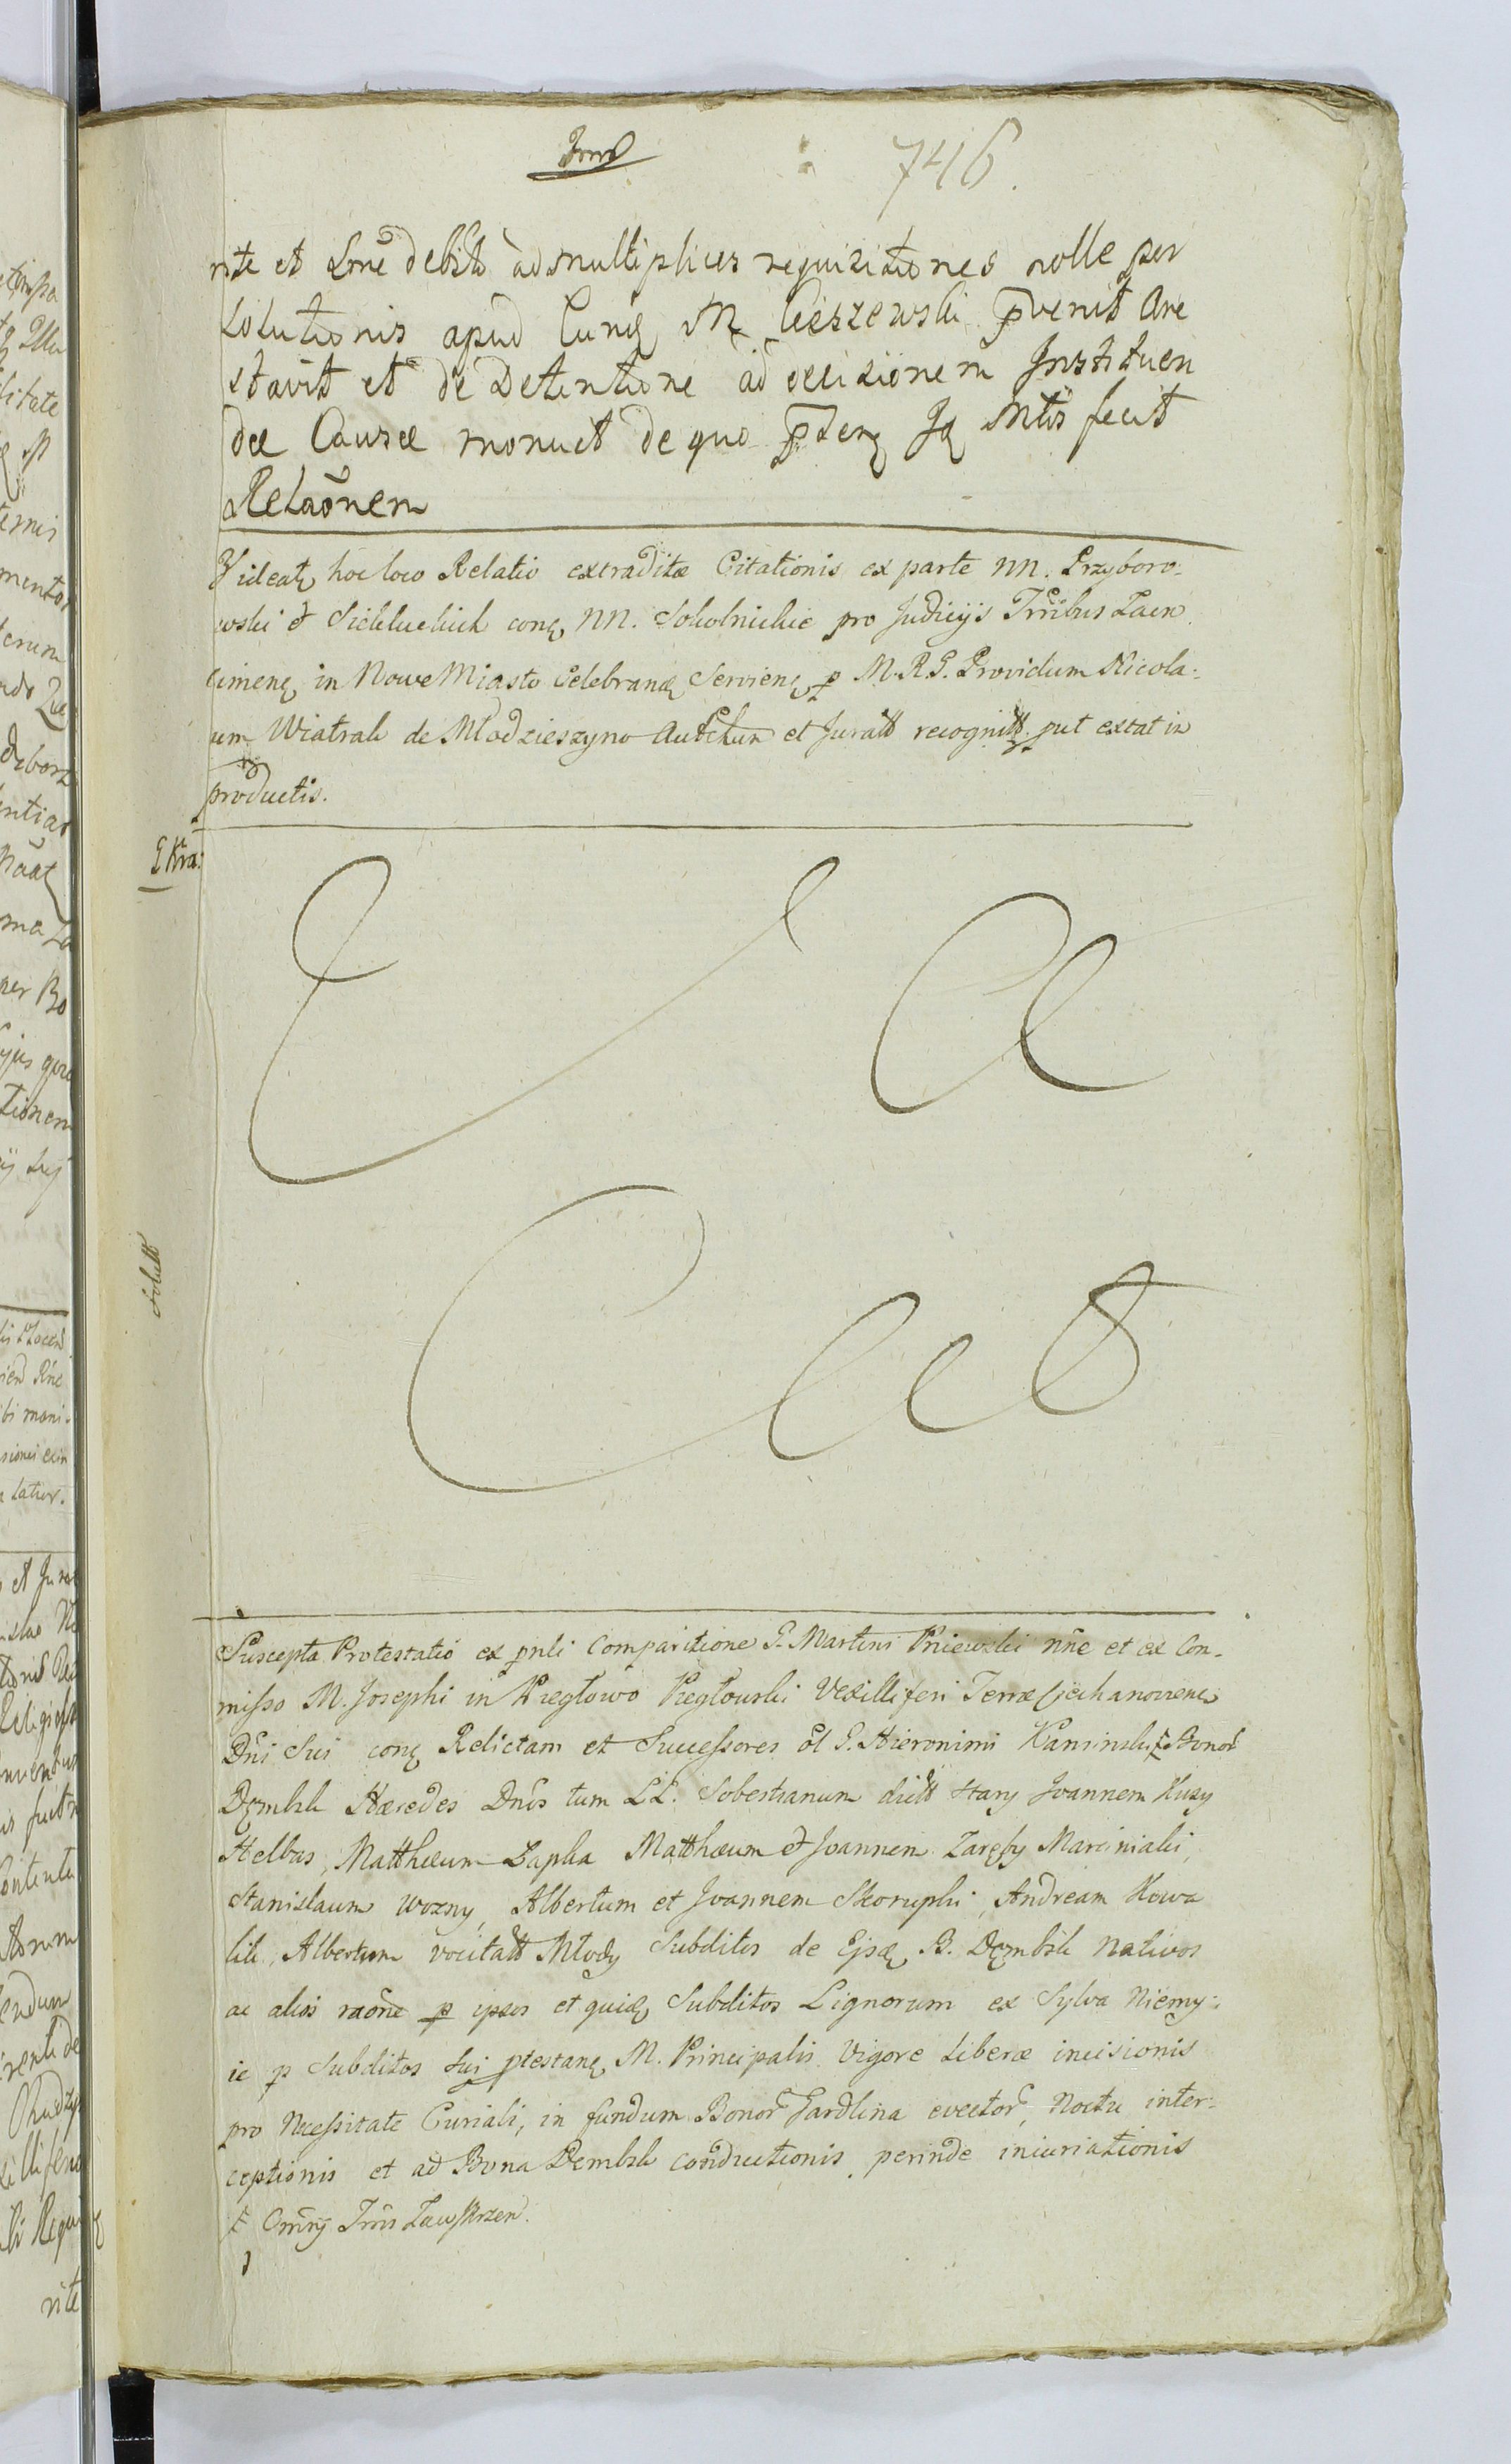 746.
rite et Lrme debito ad multiplices requisitiones nolle per
solutionis apud Cunq M Cieszewski pvenit Are
stavit et de Detentione ad decisionem Instituen
dae Causae monuit de quo pterq Iq Mtis fecit
Relaõnem
Videatq hoc loco Relatio extraditae Citationis ex parte NN. Przyboro-
wski et conq NN. Sokolnickie pro Judicijs Trribus
Cimenq in Nowe Miasto Celebranq Servienq p M.R.G. Providum Nicola-
um Wiatrak de Młodzieszyno Autchun et Juratt recognitt put extat in
productis.
Extra:
Solutt
Suscepta Protestatio ex pnli Comparitione G. Martini Kniewski nñe et ex Con-
misso M. Josephi in Kregłowo Kregłowski Vexilliferi Terrae Ciechanoviens
Dñi Sui conq Relictam et Successores ol G. Hieronimi Kaminski Bonor
Dęmbsk Haeredes Dños tum LL. Sobestianum dictt Stary Joannem Kuzy
Helbas, Matthaeum Łapka Matthaeum et Joannem Zaręby Marciniaki,
Stanislaum Wozny, Albertum et Joannem Skorupki, Andream Kowa
lik, Albertum vocitatt Młody Subditos de Ejsq B. Dęmbsk Nativos
ac alios raõne p ipsos et quidq Subditos Lignorum ex Sylva Niemy-
ie p Subditos Sui ptestanq M. Principalis Vigore Liberae incisionis
pro Necessitate Curiali, in fundum Bonor Gardlina evector, Noctu inter-
ceptionis et ad Bona Dembsk conductionis, perinde iniuriationis